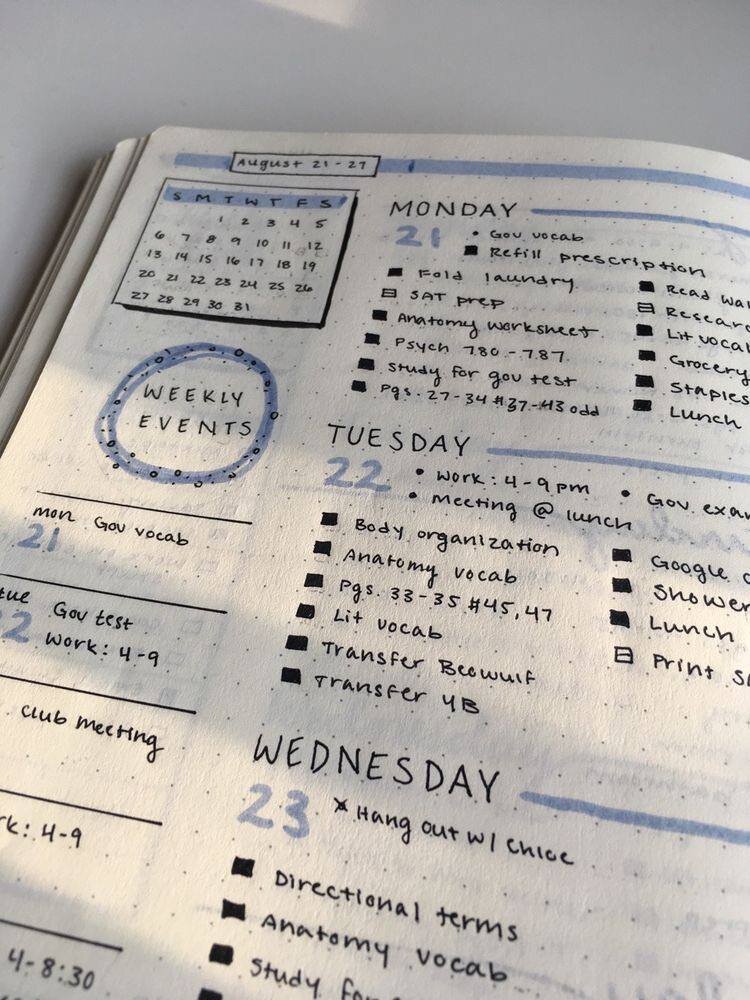 August 21 - 27
S M T W T F S
1 2 3 4 5
6 7 8 9 10 11 12
13 14 15 16 17 18 19
20 21 22 23 24 25 26
27 28 29 30 31
WEEKLY
EVENTS
mon Gov vocab
21
tue Gov test
22 work: 4-9
club meeting
4-9
4-8:30
MONDAY
21
• Gov vocab
Refill prescription
Fold laundry
SAT prep
Anatomy worksheet
Psych 780-787
Study for gov test
Pgs. 27-34 #37-43 odd
Read
Lit vocab
Grocery
Staples
Lunch
TUESDAY
22
• work: 4-9pm
• meeting @ lunch
• Gov
Body organization
Anatomy vocab
Pgs. 33-35 #45, 47
Lit vocab
Transfer Beowulf
Transfer 4B
Google
Shower
Lunch
Print
WEDNESDAY
23
× Hang out w/ Chloe
Directional terms
Anatomy vocab
Study for